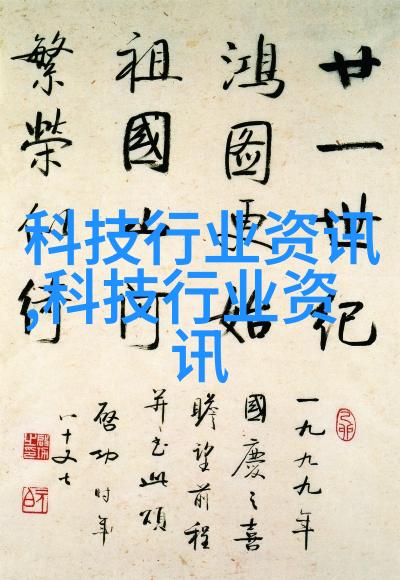 廿一世紀
鴻圖更始
祖國山河
繁榮
一九九九年
國慶之喜
瞻望前程
并书此頌
啓功时年
八十又七
科技行业资讯
,科技行业资
讯